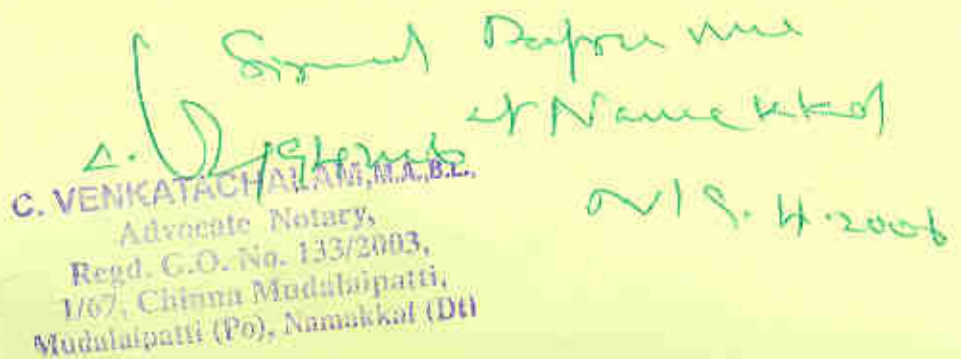 Signed Before me
at Namakkal
on 19.4.2006
C. VENKATACHALAM, M.A.,B.L.,
Advocate Notary,
Regd. G.O. No. 133/2003,
1/67, Chinna Mudalaipatti,
Mudalaipatti (Po), Namakkal (Dt)